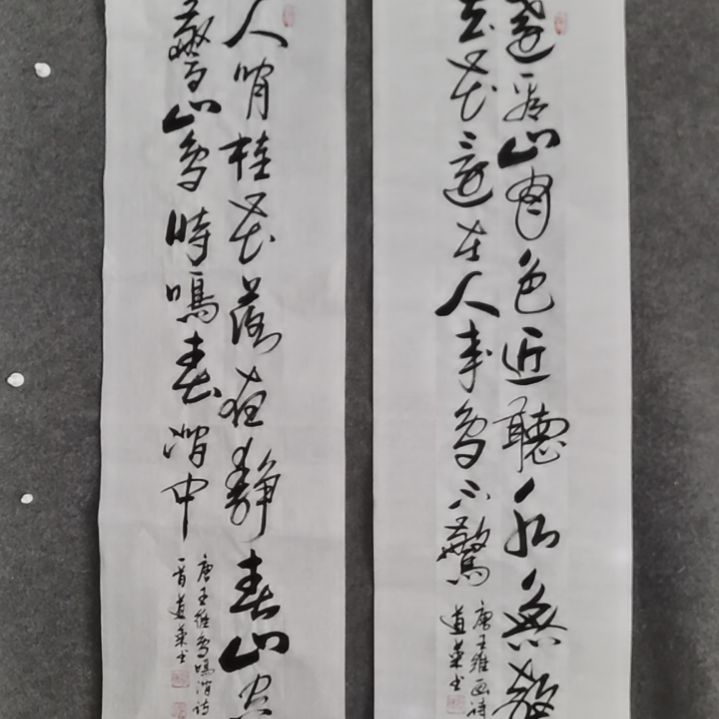 遠看山有色近聽水無聲
去花還在人来鳥不驚
唐王維画诗
道葉书
人閒桂花落夜静春山空
驚山鳥時鳴春澗中
唐王維鳥鳴澗诗
一首道葉书